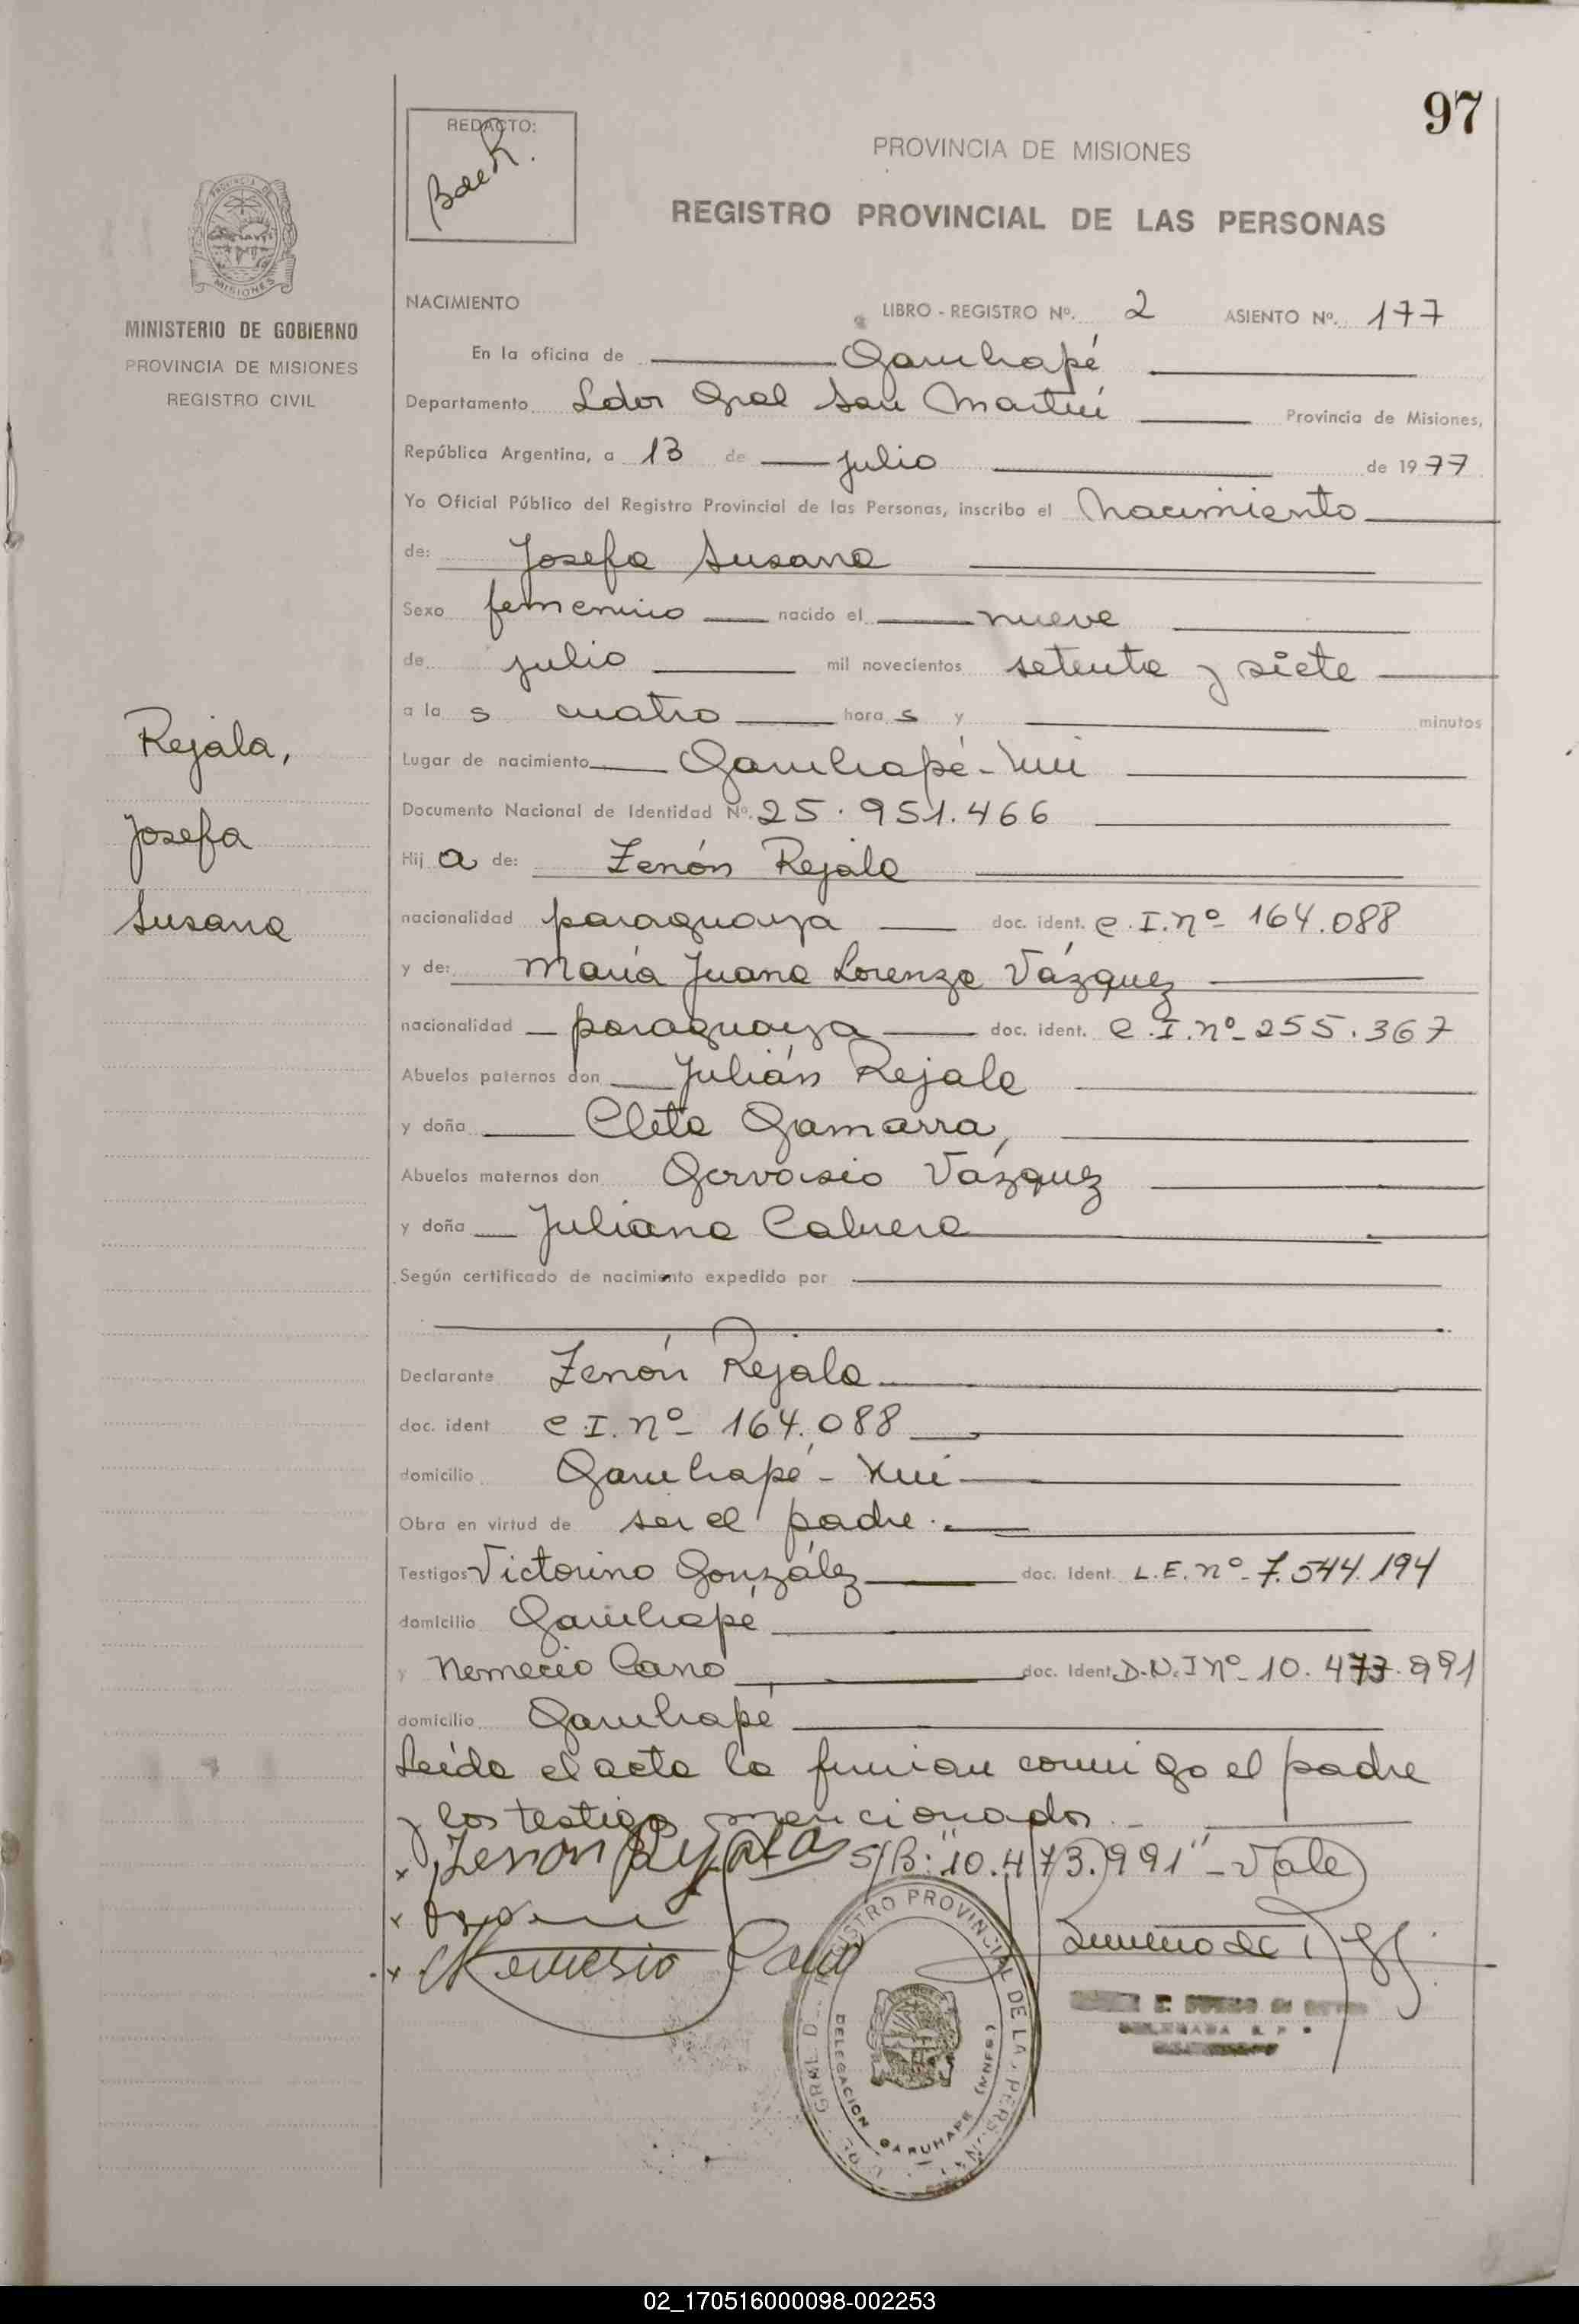 97
REDACTO:
PROVINCIA DE MISIONES
REGISTRO PROVINCIAL DE LAS PERSONAS
PROVINCIA DE
MISIONES
MINISTERIO DE GOBIERNO
PROVINCIA DE MISIONES
REGISTRO CIVIL
NACIMIENTO LIBRO - REGISTRO Nº. 2 ASIENTO Nº. 177
En la oficina de Garuhapé
Departamento Ldor Gral San Martín Provincia de Misiones,
República Argentina, a 13 de julio de 1977
Yo Oficial Público del Registro Provincial de las Personas, inscribo el nacimiento
de: Josefa Susana
Sexo femenino nacido el nueve
de julio mil novecientos setenta y siete
a la s cuatro hora s y minutos
Rejala,
Josefa
Susana
Lugar de nacimiento Garuhapé-Mi
Documento Nacional de Identidad Nº. 25.951.466
Hij a de: Zenón Rejala
nacionalidad paraguaya doc. ident. C.I.nº 164.088
y de: María Juana Lorenza Vázquez
nacionalidad paraguaya doc. ident. C.I.nº 255.367
Abuelos paternos don Julián Rejala
y doña Cleta Gamarra,
Abuelos maternos don Gervasio Vázquez
y doña Juliana Cabrera
Según certificado de nacimiento expedido por
Declarante Zenón Rejala
doc. ident C.I. nº 164.088
domicilio Garuhapé - Mi
Obra en virtud de ser el padre.
Testigos Victorino González doc. Ident. L.E. nº 7.544.194
domicilio Garuhapé
y Nemecio Cano doc. Ident. D.N.I nº 10.473.991
domicilio Garuhapé
Leída el acta la firman conmigo el padre
y los testigos mencionados.-
x Zenon Rejala S/B: "10.473.991" - Vale
x
x Nemesio Cano
REGISTRO PROVINCIAL DE LAS PERSONAS
DELEGACION GARUHAPE (MNES)
02_170516000098-002253